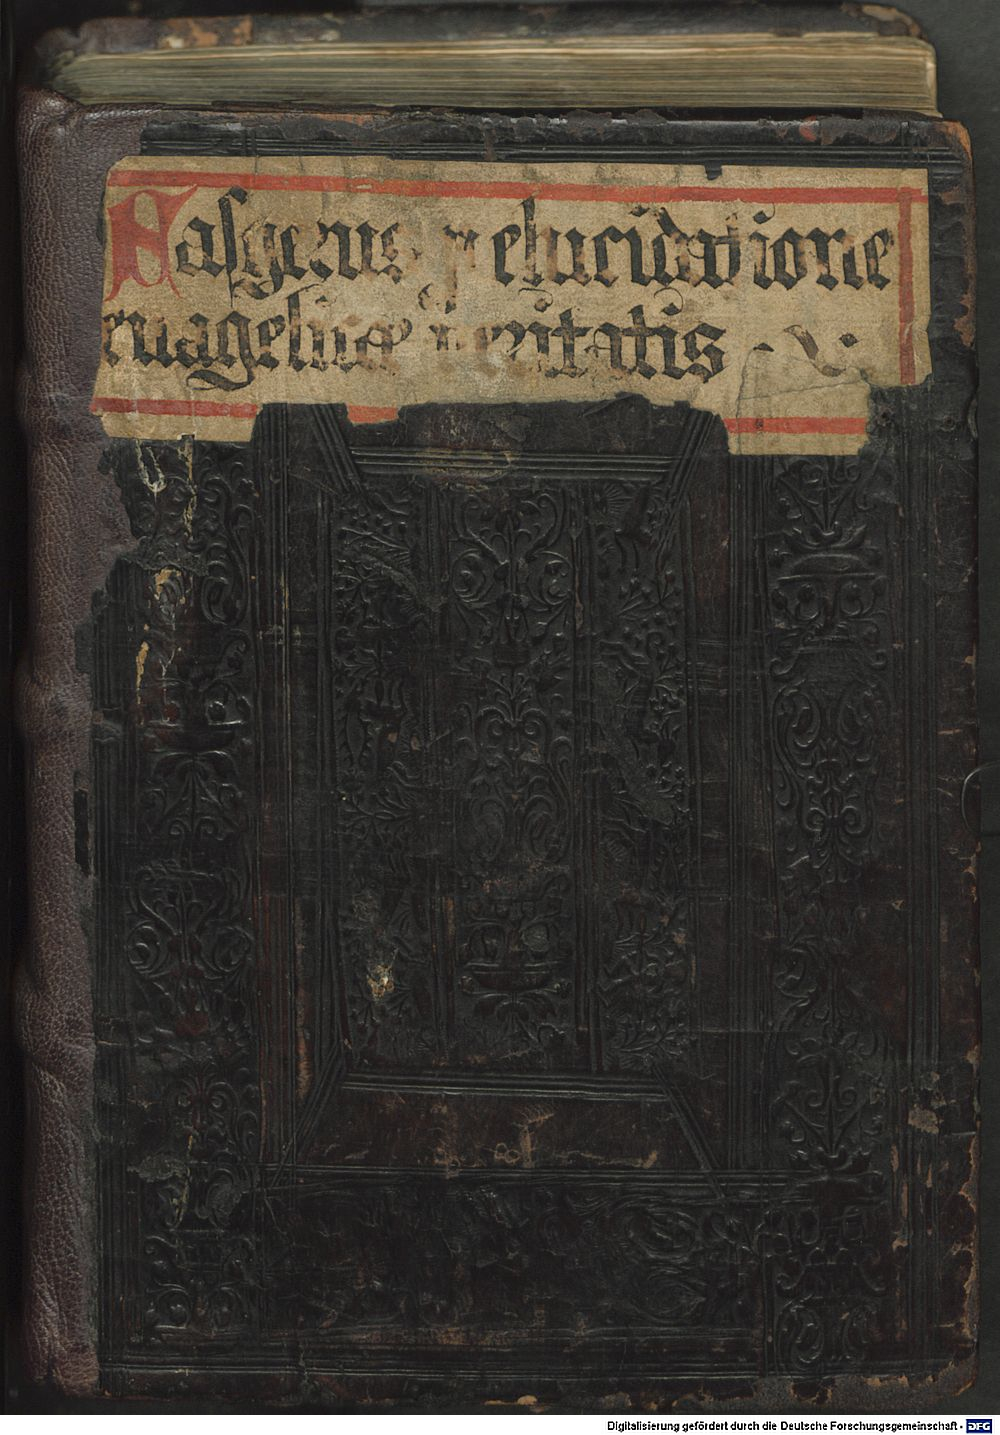 Kasgerus p elucidatione
euagelicæ veritatis . X.
Digitalisierung gefördert durch die Deutsche Forschungsgemeinschaft - DFG